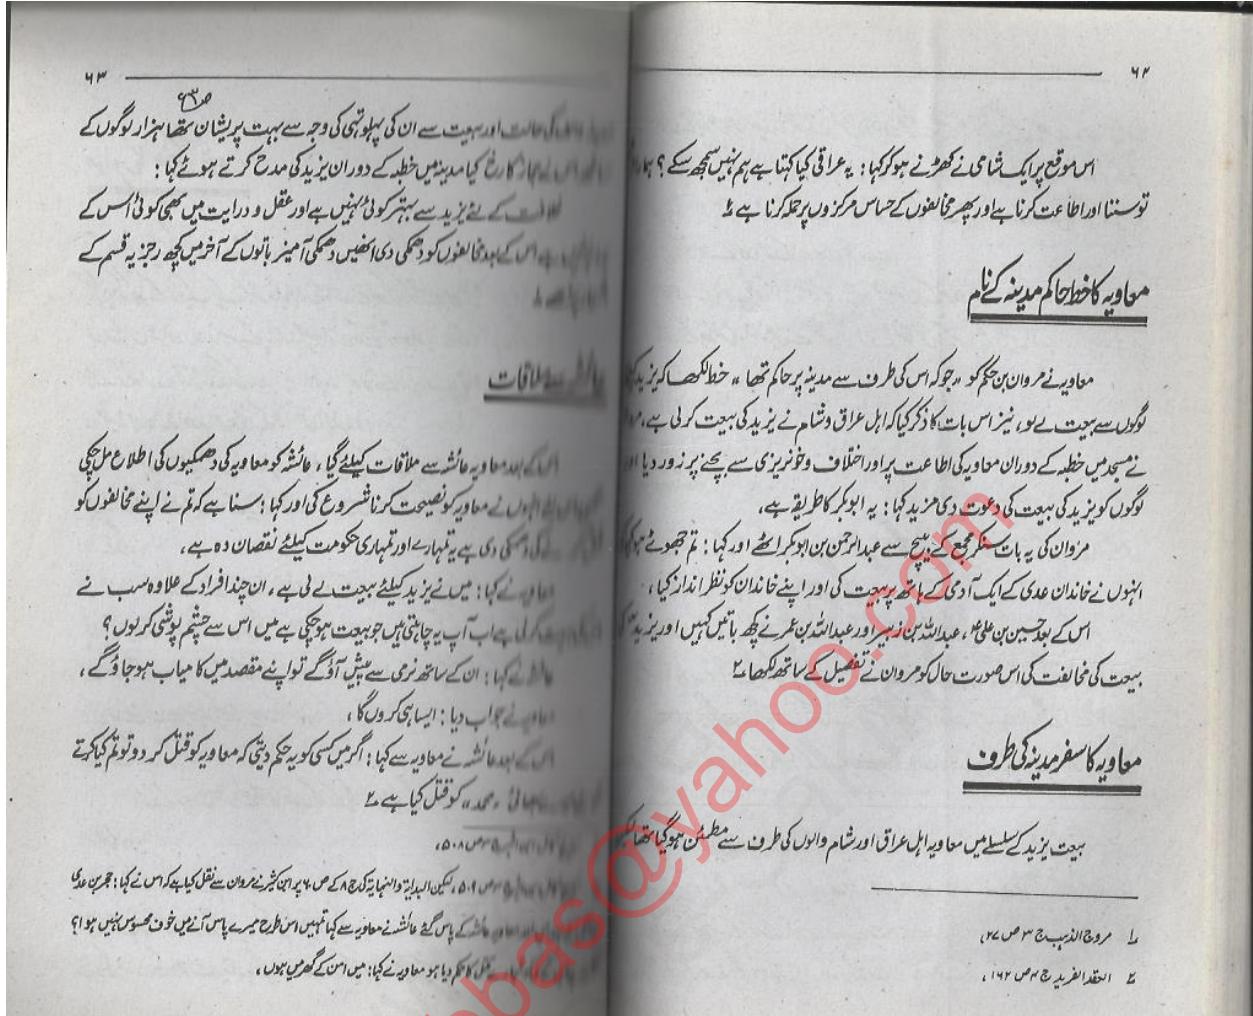 ۶۲
اس موقع پر ایک شامی نے کھڑے ہو کر کہا: یہ عراقی کیا کہتا ہے ہم نہیں سمجھ سکے؟ ہمارا
تو سننا اور اطاعت کرنا ہے اور پھر مخالفوں کے حساس مرکزوں پر حملہ کرنا ہے ۱
معاویہ کا خط حاکم مدینہ کے نام
معاویہ نے مروان بن حکم کو "جو کہ اس کی طرف سے مدینہ پر حاکم تھا" خط لکھا کہ یزید کی
لوگوں سے بیعت لے لو، نیز اس بات کا ذکر کیا کہ اہل عراق و شام نے یزید کی بیعت کر لی ہے،
نے مسجد میں خطبہ کے دوران معاویہ کی اطاعت پر اور اختلاف و خونریزی سے بچنے پر زور دیا اور
لوگوں کو یزید کی بیعت کی دعوت دی مزید کہا: یہ ابوبکر کا طریقہ ہے،
مروان کی یہ بات سنکر مجمع کے بیچ سے عبدالرحمن بن ابوبکر اٹھے اور کہا: تم جھوٹے ہو
انہوں نے خاندان عدی کے ایک آدمی کے ہاتھ پر بیعت کی اور اپنے خاندان کو نظر انداز کیا،
اس کے بعد حسین بن علیؑ، عبداللہ بن زبیر اور عبداللہ بن عمر نے کچھ باتیں کہیں اور یزید کی
بیعت کی مخالفت کی اس صورت حال کو مروان نے تفصیل کے ساتھ لکھا ۲
معاویہ کا سفر مدینہ کی طرف
بیعت یزید کے سلسلے میں معاویہ اہل عراق اور شام والوں کی طرف سے مطمئن ہو گیا تھا لیکن
۱ مروج الذہب ج ۳ ص ۲۷،
۲ العقد الفرید ج ۴ ص ۱۶۲،
۶۳
ص ۶۳
کی حالت اور بیعت سے ان کی پہلو تہی کی وجہ سے بہت پریشان تھا ہزار لوگوں کے
کا رخ کیا مدینہ میں خطبہ کے دوران یزید کی مدح کرتے ہوئے کہا:
خلافت کے لئے یزید سے بہتر کوئی نہیں ہے اور عقل و درایت میں بھی کوئی اس کے
ہے اس کے بعد مخالفوں کو دھمکی دی انھیں دھمکی آمیز باتوں کے آخر میں کچھ رجزیہ قسم کے
عائشہ سے ملاقات
اس کے بعد معاویہ عائشہ سے ملاقات کیلئے گیا، عائشہ کو معاویہ کی دھمکیوں کی اطلاع مل چکی
انہوں نے معاویہ کو نصیحت کرنا شروع کی اور کہا: سنا ہے کہ تم نے اپنے مخالفوں کو
کی دھمکی دی ہے یہ تمہارے اور تمہاری حکومت کیلئے نقصان دہ ہے،
معاویہ نے کہا: میں نے یزید کیلئے بیعت لے لی ہے، ان چند افراد کے علاوہ سب نے
بیعت کر لی ہے اب آپ یہ چاہتی ہیں جو بیعت ہو چکی ہے میں اس سے چشم پوشی کر لوں؟
عائشہ نے کہا: ان کے ساتھ نرمی سے پیش آؤ گے تو اپنے مقصد میں کامیاب ہو جاؤ گے،
معاویہ نے جواب دیا: ایسا ہی کروں گا،
اس کے بعد عائشہ نے معاویہ سے کہا: اگر میں کسی کو یہ حکم دیتی کہ معاویہ کو قتل کر دو تو تم کیا کرتے
بھائی "محمد" کو قتل کیا ہے ۲
ص ۵۰۸،
ص ۵۰۹، لیکن البدایۃ والنہایۃ کی ج ۸ کے ص ۶۰ پر ابن کثیر نے مروان سے نقل کیا ہے کہ اس نے کہا: حجر بن عدی
معاویہ عائشہ کے پاس گئے عائشہ نے معاویہ سے کہا تمہیں اس طرح میرے پاس آنے میں خوف محسوس نہیں ہوا؟
حکم دیا ہو معاویہ نے کہا: میں امن کے گھر میں ہوں،
bas@yahoo.com